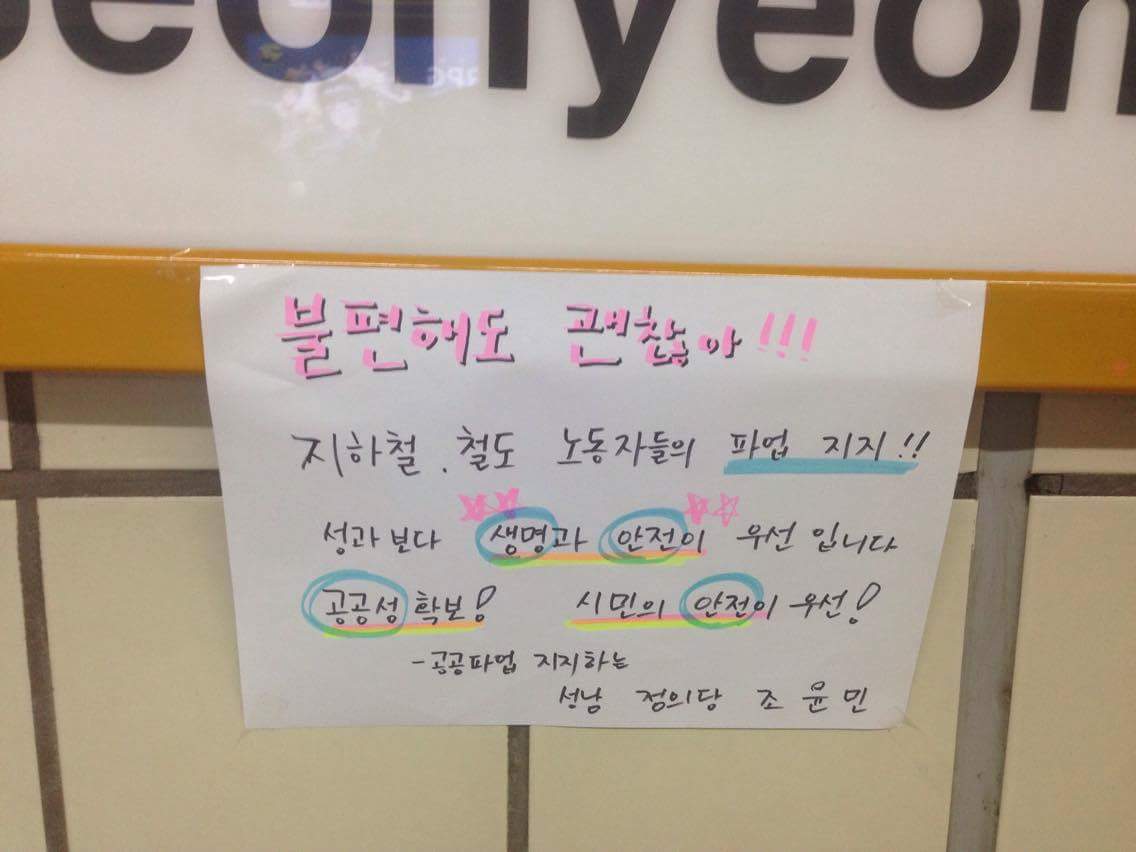 eonyeon
불편해도 괜찮아!!!
지하철.철도 노동자들의 파업 지지!!
성과보다 생명과 안전이 우선 입니다
공공성 확보! 시민의 안전이 우선!
-공공파업 지지하는
성남 정의당 조윤민